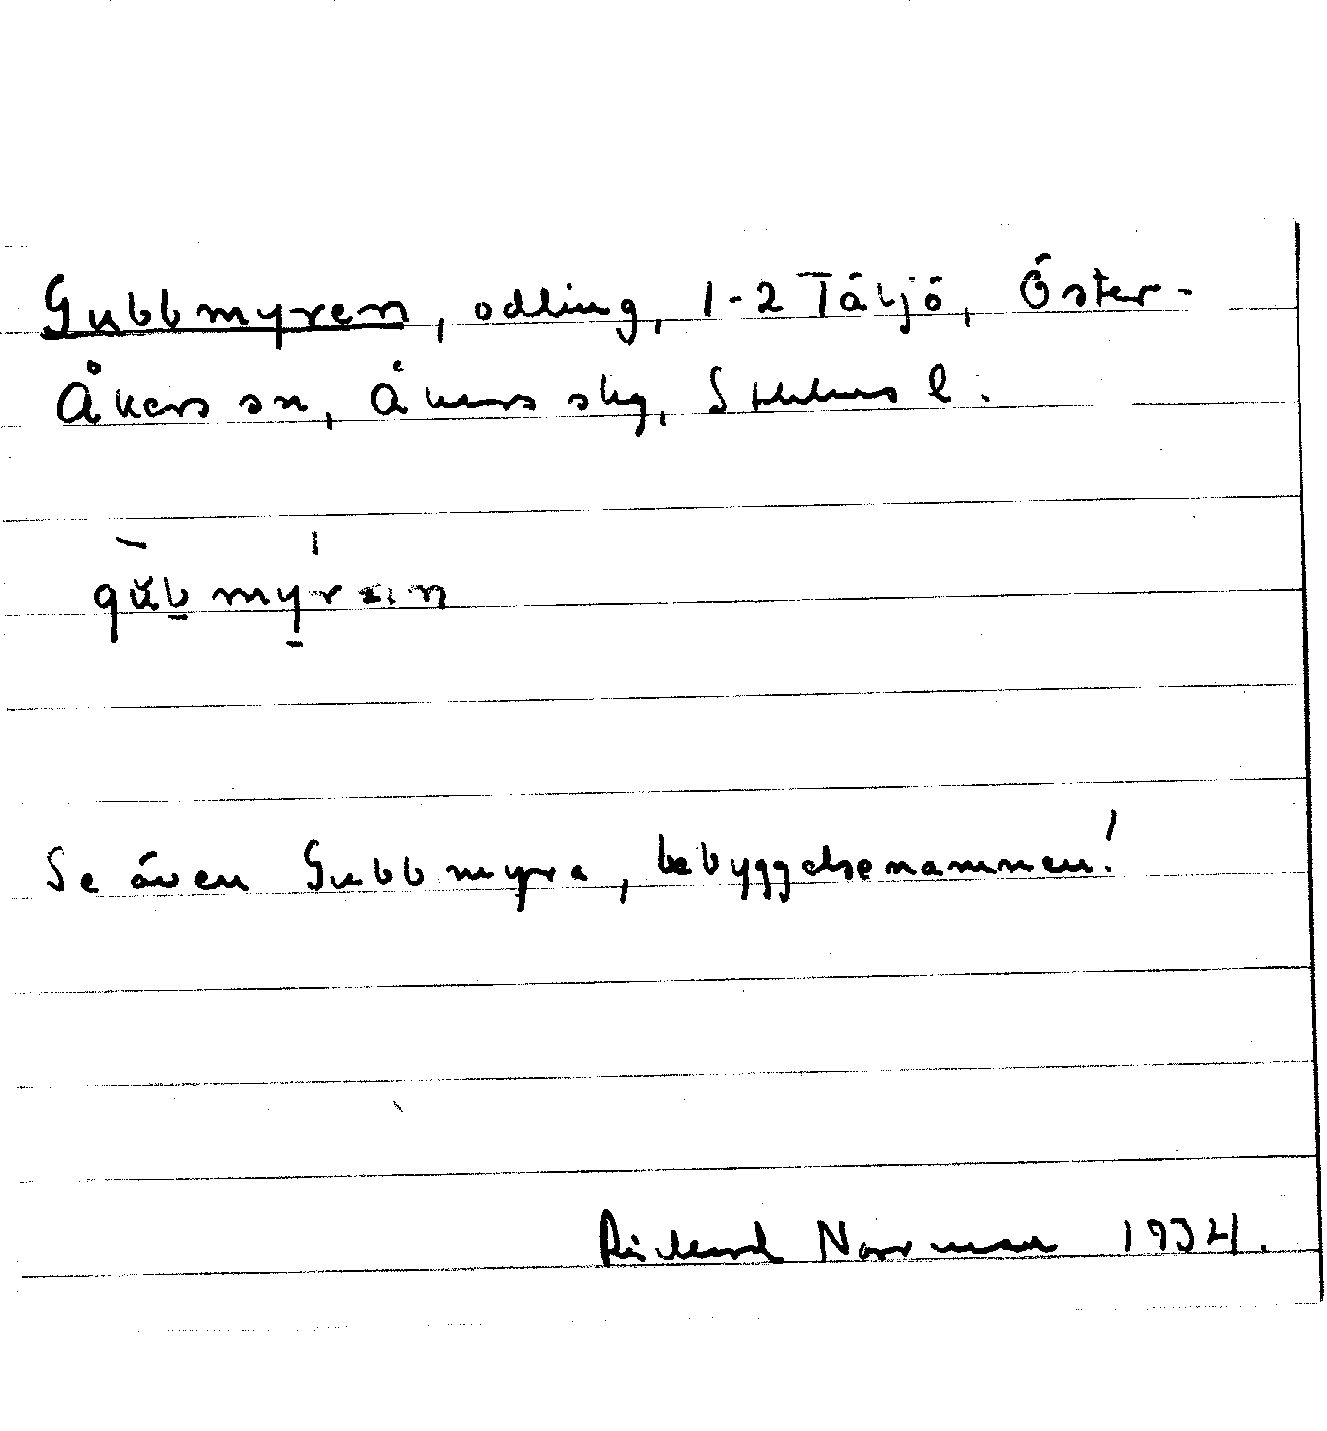 Gubbmyren, odling, 1-2 Täljö, Öster-
Åkers sn, Åkers skg, Sthlms l.
Se även Gubbmyra, bebyggelsenamnen!
Rickard Norrman 1934.